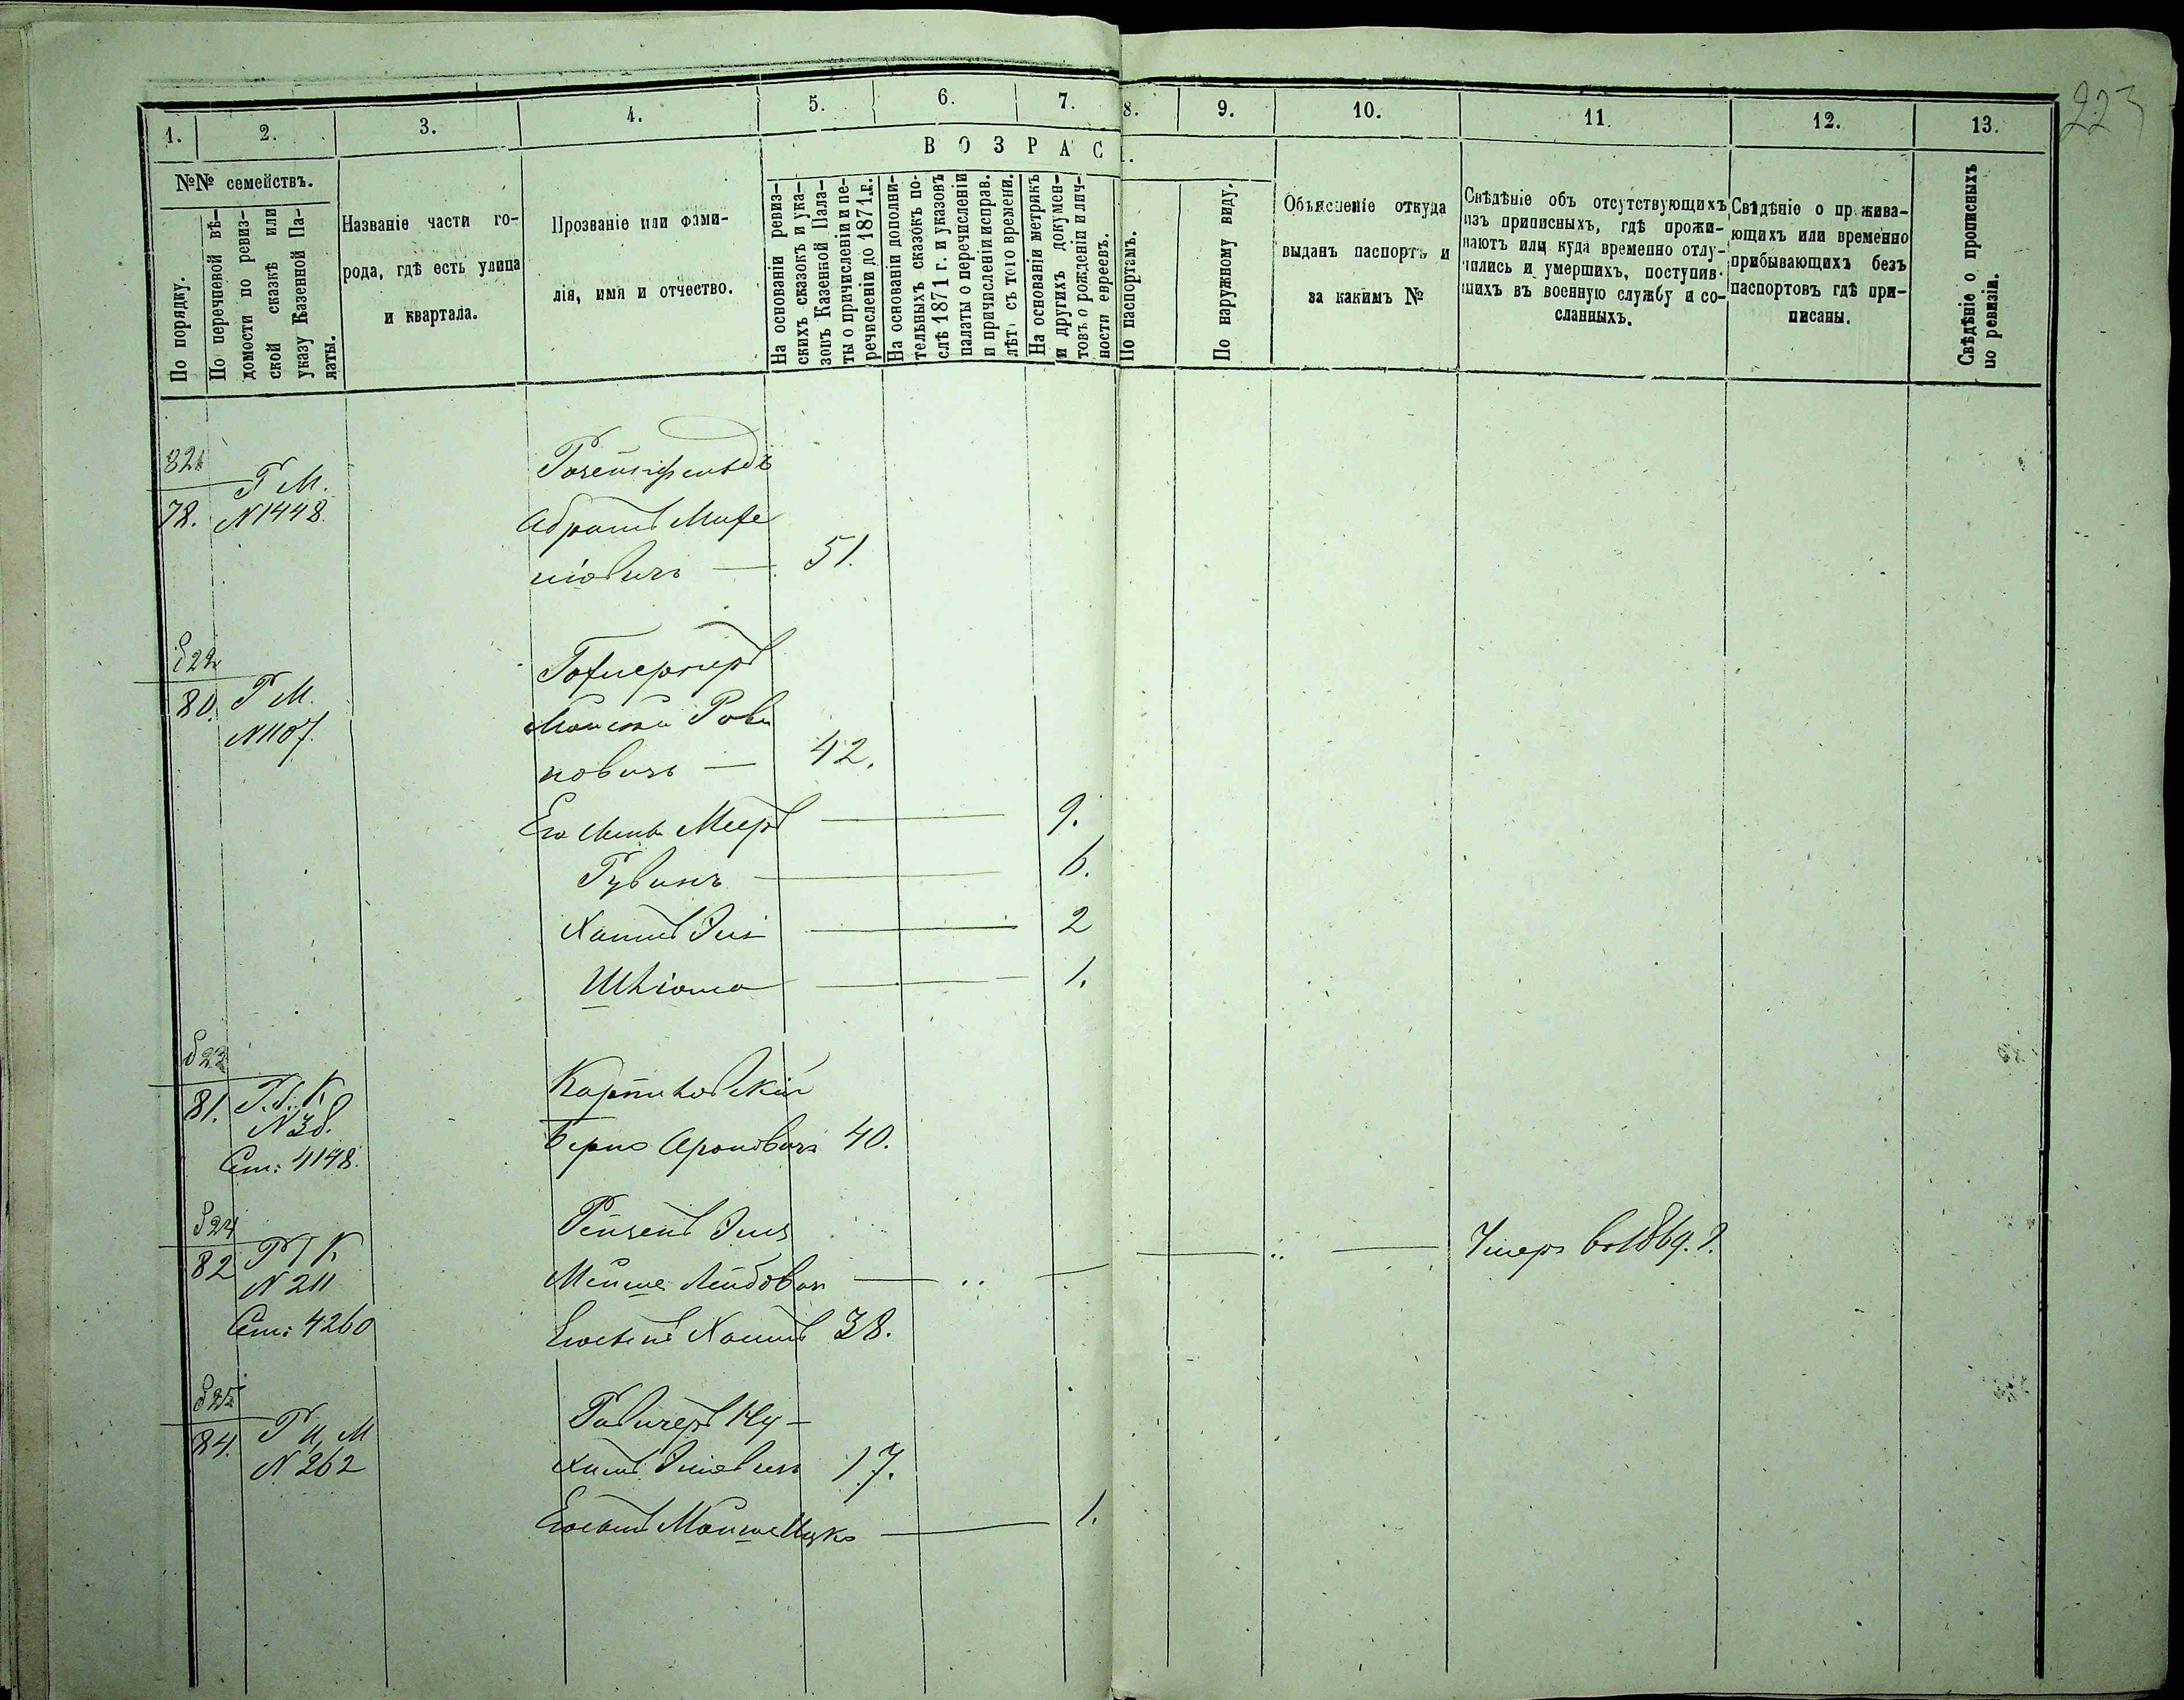 223
1. 2. 3. 4. 5. 6. 7. 8. 9. 10. 11. 12. 13.
ВОЗРАС
№№ семействъ.
По порядку.
По перечневой вѣ-
домости по ревиз-
ской сказкѣ или
указу Казенной Па-
латы.
Названіе части го-
рода, гдѣ есть улица
и квартала.
Прозваніе или фами-
лія, имя и отчество.
На основаніи ревиз-
скихъ сказокъ и ука-
зовъ Казенной Пала-
ты о причисленіи и пе-
речисленіи до 1871 г.
На основаніи дополни-
тельныхъ сказокъ по-
слѣ 1871 г. и указовъ
палаты о перечисленіи
и причисленіи исправ.
лѣтъ съ того времени.
На основаніи метрикъ
и другихъ докумен-
товъ о рожденіи и лич-
ности евреевъ.
По паспортамъ.
По наружному виду.
Объясненіе откуда
выданъ паспортъ и
за какимъ №
Свѣдѣніе объ отсутствующихъ
изъ приписныхъ, гдѣ прожи-
ваютъ или куда временно отлу-
чились и умершихъ, поступив-
шихъ въ военную службу и со-
сланныхъ.
Свѣдѣніе о прожива-
ющихъ или временно
прибывающихъ безъ
паспортовъ гдѣ при-
писаны.
Свѣдѣніе о прописныхъ
по ревизіи.
821
78. Р М.
N 1448.
Розенфельдъ
Абрамъ
51.
822
80. Р М.
N 1107.
42.
Его сынъ Мееръ 9.
Рувинъ 6.
Хаимъ 2
Шліома 1.
823
81. Р. Г. К
N 38.
Ст: 4148.
Карпиловскій
Берко Ароновичъ 40.
824
82 Р Г К
N 211
Ст: 4260
Мейше Лейбовъ
Умеръ въ 1869. г.
Хаимъ 38.
825
84. Р Ц М
N 262
17.
Мошко 1.